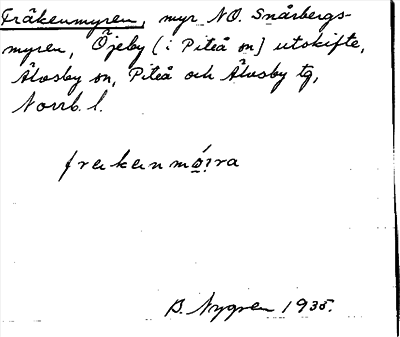 Fräkenmyren, myr NO. Snårbergs-
myren, Öjeby (i Piteå sn) utskifte,
Älvsby sn, Piteå och Älvsby tg,
Norrb. l.
B. Nygren 1935.